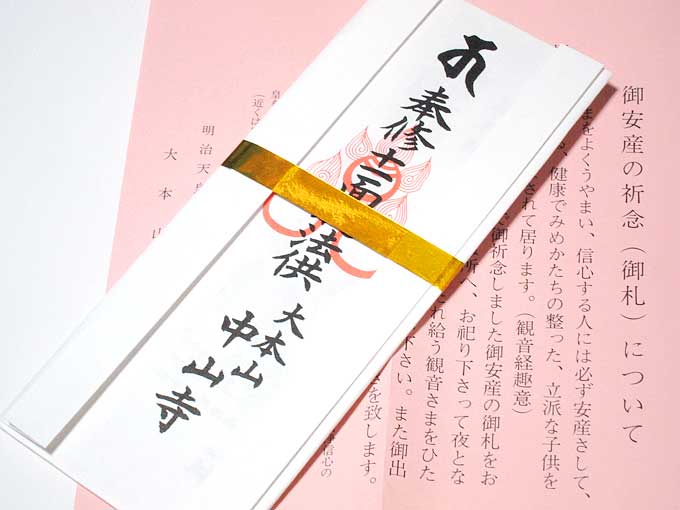 奉修十一面
法供
大本山
中山寺
御安産の祈念(御札)について
まをよくうやまい、信心する人には必ず安産さして、
、健康でみめかたちの整った、立派な子供を
されて居ります。(観音経趣意)
で御祈念しました御安産の御札をお
所へ、お祀り下さって夜とな
れ給う観音さまをひた
下さい。また御出
を致します。
信心の
(近くは
明治天皇
大本山